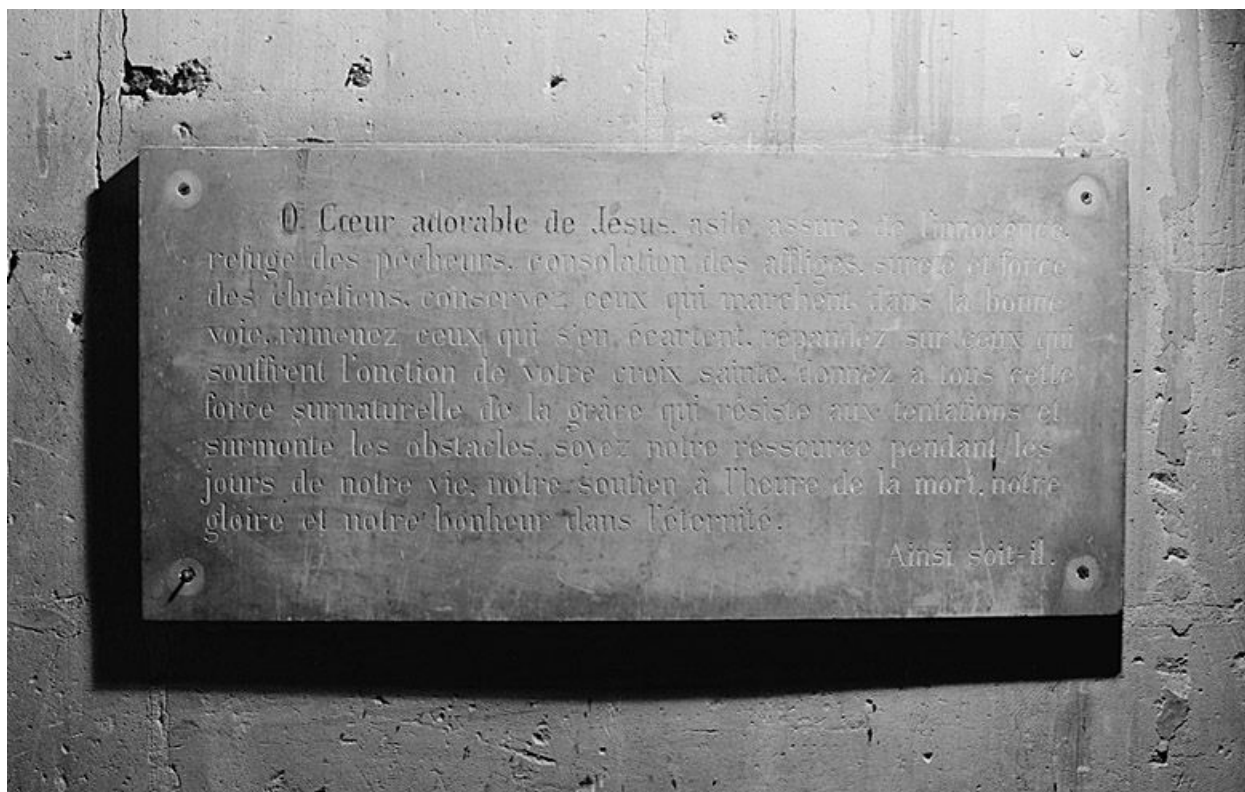 O Cœur adorable de Jésus, asile assuré de l'innocence,
refuge des pécheurs, consolation des affligés, sûreté et force
des chrétiens, conservez ceux qui marchent dans la bonne
voie, ramenez ceux qui s'en écartent, répandez sur ceux qui
souffrent l'onction de votre croix sainte, donnez à tous cette
force surnaturelle de la grâce qui résiste aux tentations et
surmonte les obstacles, soyez notre ressource pendant les
jours de notre vie, notre soutien à l'heure de la mort, notre
gloire et notre bonheur dans l'éternité.
Ainsi soit-il.